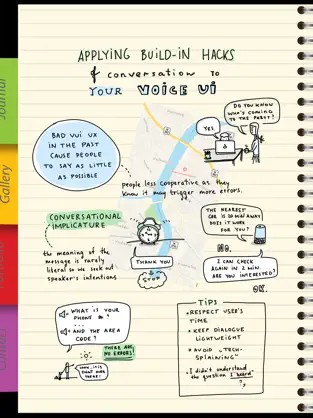 Journal
Gallery
APPLYING BUILD-IN HACKS
of conversation to
YOUR VOICE UI
DO YOU KNOW
WHO'S COMING
TO THE PARTY?
YES.
BAD VUI UX
IN THE PAST
CAUSE PEOPLE
TO SAY AS LITTLE
AS POSSIBLE
people less cooperative as they
know it may trigger more errors.
CONVERSATIONAL
IMPLICATURE
the meaning of the
message is rarely
literal so we seek out
speaker's intentions
THANK YOU
= STOP
THE NEAREST
CAR IS 20 MIN AWAY
DOES IT WORK
FOR YOU?
NO.
I CAN CHECK
AGAIN IN 2 MIN.
ARE YOU INTERESTED?
OK.
WHAT IS YOUR
PHONE № ?
...
... AND THE AREA
CODE?
THERE ARE
NO ERRORS!
TIPS
• RESPECT USER'S
TIME
• KEEP DIALOGUE
LIGHTWEIGHT
• AVOID "TECH-
SPLAINING"
I didn't understand
the question I heard
?